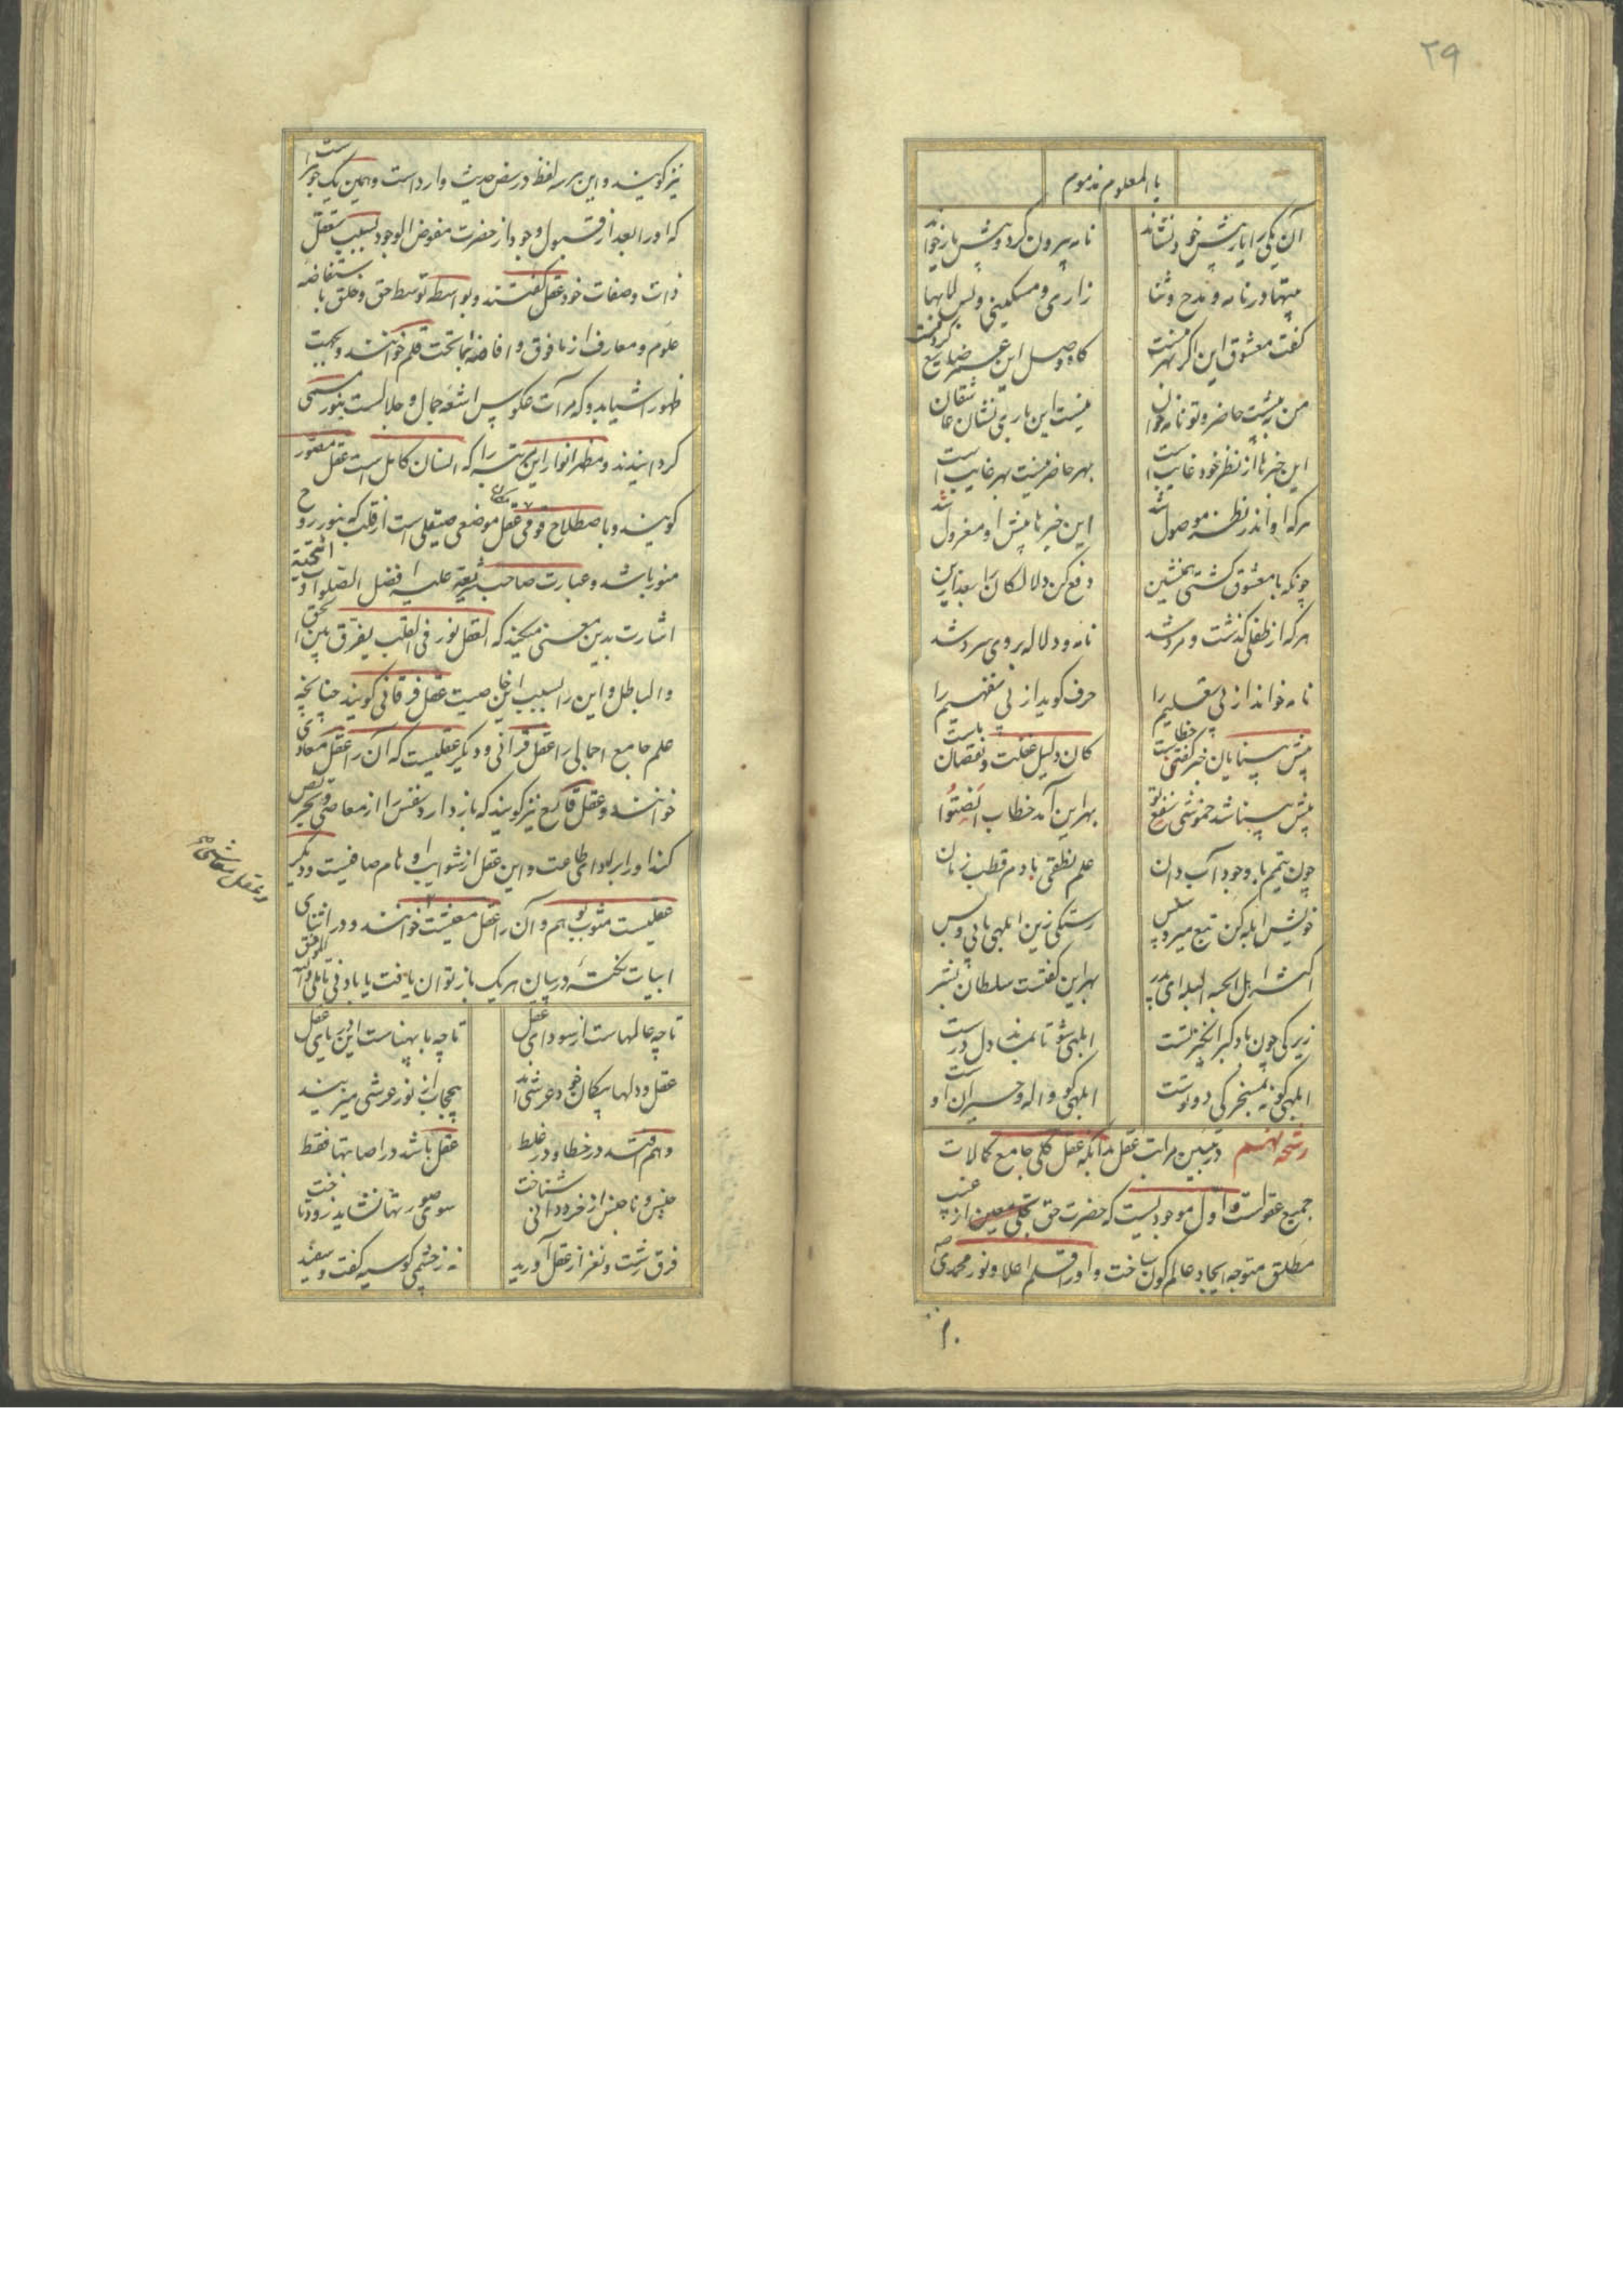 ۲۹
بالمعلوم مذموم
آن یکی را یار پیش خود نشاند نامه بیرون کرد و پیش یار خواند
بیتها در نامه و مدح و ثنا زاری و مسکینی و بس لابها
گفت معشوق این اگر بهر منست گاه وصل این عمر ضایع کردنست
من به پیشت حاضر و تو نامه خوان نیست این باری نشان عاشقان
این خبرها از نظر خود غایب است بهر حاضر نیست بهر غایب است
هر که او اندر نظر موصول شد این خبرها پیش او معزول شد
چونکه با معشوق گشتی همنشین دفع کن دلالکان را بعد ازین
هر که از طفلی گذشت و مرد شد نامه و دلاله بر وی سرد شد
نامه خواند از پی تعلیم را حرف گوید از پی تفهیم را
پیش بینایان خبر گفتن خطاست کان دلیل غفلت و نقصان ماست
پیش بینا شد خموشی نفع تو بهر این آمد خطاب انصتوا
چون تیمم با وجود آب دان علم نقلی با دم قطب زمان
خویش ابله کن تبع میرو سپس رستگی زین ابلهی یابی و بس
اکثر اهل الجنة البله ای پدر بهر این گفتست سلطان بشر
زیرکی چون باد کبر انگیز تست ابلهی شو تا بماند دل درست
ابلهی کو نه بمسخرگی دوتوست ابلهی کو واله و حیران اوست
رشحه نهم در تبیین مراتب عقل بدانکه عقل کلی جامع کمالات
جمیع عقولست و اول موجودیست که حضرت حق بتجلی معین از غیب
مطلق متوجه ایجاد عالم کون ساخت و او را قلم اعلا و نور محمدی صه
نیز گویند و این هر سه لفظ در نص حدیث وارد است و همین یک جوهر است
که او را بعد از قبول وجود از حضرت مفیض الوجود بسبب تعقل
ذات و صفات خود عقل گفتند و بواسطه توسط حق و خلق باستفاضه
علوم و معارف از مافوق و افاضه بماتحت قلم خوانند و بجهت
ظهور اشیا بدو که مرآت عکوس اشعه جمال و جلالست بنور مسمی
گردانیدند و مظهر انوار این مرتبه را که انسان کامل است عقل مصور
گویند و باصطلاح قومی عقل موضعی صیقلی است از قلب که بنور روح
منور باشد و عبارت صاحب شریعة علیه افضل الصلوات و التحیة
اشارت بدین معنی میکند که العقل نور فی القلب یفرق بین الحق
و الباطل و این را بسبب این خاصیت عقل فرقانی گویند چنانچه
علم جامع اجمالی را عقل قرآنی و دیگر عقلیست که آن را عقل معادی
خوانند و عقل قامع نیز گویند که باز دارد نفس را از معاصی و تحریص
کند او را بر ادای طاعت و این عقل از شوایب اوهام صافیست و دیگر
عقلیست مشوب بوهم و آن را عقل معیشت خوانند و در اثنای
ابیات نکته در بیان هر یک باز توان یافت با بادنی تاملی والله الموفق
تا چه عالمهاست از سودای عقل تا چه با پهناست این دریای عقل
عقل و دلها بیکان خود عرشی اند بیحجاب از نور عرشی میزیند
وهم افتد در خطا و در غلط عقل باشد در اصابتها فقط
جنس و ناجنس از خرد دانی شناخت سوی صورتها نشاید زود تاخت
فرق زشت و نغز از عقل آورید نه ز چشمی کو سیه گفت و سفید